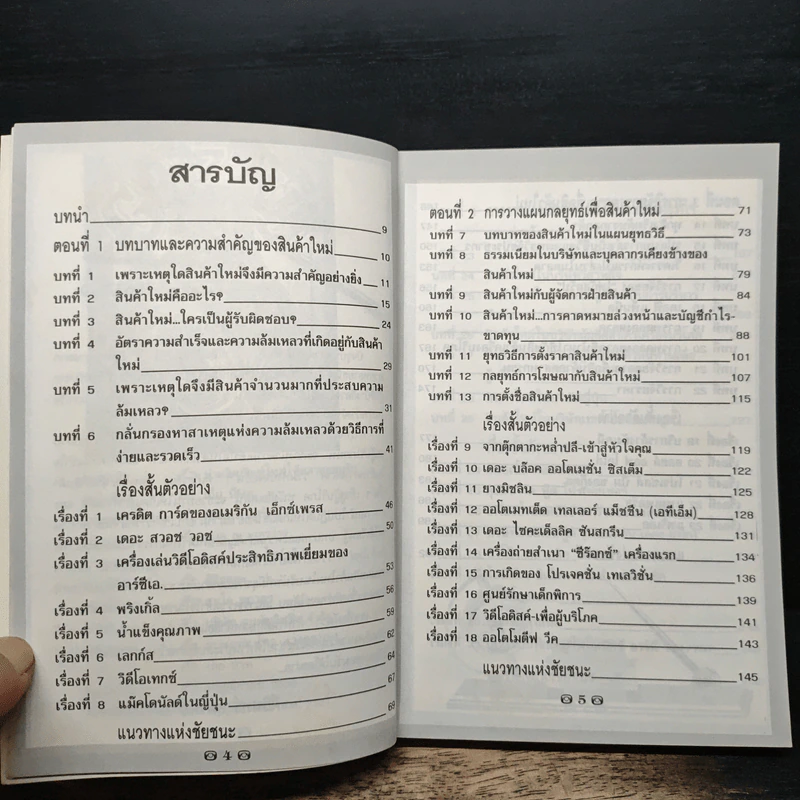 สารบัญ
บทนำ 9
ตอนที่ 1 บทบาทและความสำคัญของสินค้าใหม่ 10
บทที่ 1 เพราะเหตุใดสินค้าใหม่จึงมีความสำคัญอย่างยิ่ง 11
บทที่ 2 สินค้าใหม่คืออะไร? 15
บทที่ 3 สินค้าใหม่...ใครเป็นผู้รับผิดชอบ? 24
บทที่ 4 อัตราความสำเร็จและความล้มเหลวที่เกิดอยู่กับสินค้า
ใหม่ 29
บทที่ 5 เพราะเหตุใดจึงมีสินค้าจำนวนมากที่ประสบความ
ล้มเหลว? 31
บทที่ 6 กลั่นกรองหาสาเหตุแห่งความล้มเหลวด้วยวิธีการที่
ง่ายและรวดเร็ว 41
เรื่องสั้นตัวอย่าง
เรื่องที่ 1 เครดิต การ์ดของอเมริกัน เอ็กซ์เพรส 46
เรื่องที่ 2 เดอะ สวอช วอช 50
เรื่องที่ 3 เครื่องเล่นวิดีโอดิสค์ประสิทธิภาพเยี่ยมของ
อาร์ซีเอ. 53
เรื่องที่ 4 พริงเกิ้ล 56
เรื่องที่ 5 น้ำแข็งคุณภาพ 59
เรื่องที่ 6 เลกก์ส 62
เรื่องที่ 7 วิดีโอเทกซ์ 64
เรื่องที่ 8 แม๊คโดนัลด์ในญี่ปุ่น 67
แนวทางแห่งชัยชนะ 69
4
ตอนที่ 2 การวางแผนกลยุทธ์เพื่อสินค้าใหม่ 71
บทที่ 7 บทบาทของสินค้าใหม่ในแผนยุทธวิธี 73
บทที่ 8 ธรรมเนียมในบริษัทและบุคลากรเคียงข้างของ
สินค้าใหม่ 79
บทที่ 9 สินค้าใหม่กับผู้จัดการฝ่ายสินค้า 84
บทที่ 10 สินค้าใหม่...การคาดหมายล่วงหน้าและบัญชีกำไร-
ขาดทุน 88
บทที่ 11 ยุทธวิธีการตั้งราคาสินค้าใหม่ 101
บทที่ 12 กลยุทธ์การโฆษณากับสินค้าใหม่ 107
บทที่ 13 การตั้งชื่อสินค้าใหม่ 115
เรื่องสั้นตัวอย่าง
เรื่องที่ 9 จากตุ๊กตากะหล่ำปลี-เข้าสู่หัวใจคุณ 119
เรื่องที่ 10 เดอะ บล๊อค ออโตเมชั่น ซิสเต็ม 122
เรื่องที่ 11 ยางมิชลิน 125
เรื่องที่ 12 ออโตเมทเต็ด เทลเลอร์ แม็ชชีน (เอทีเอ็ม) 128
เรื่องที่ 13 เดอะ ไซคะเด็ลลิค ซันสกรีน 131
เรื่องที่ 14 เครื่องถ่ายสำเนา “ซีร๊อกซ์” เครื่องแรก 134
เรื่องที่ 15 การเกิดของ โปรเจคชั่น เทเลวิชั่น 136
เรื่องที่ 16 ศูนย์รักษาเด็กพิการ 139
เรื่องที่ 17 วิดีโอดิสค์-เพื่อผู้บริโภค 141
เรื่องที่ 18 ออโตโมตีฟ วีค 143
แนวทางแห่งชัยชนะ 145
5